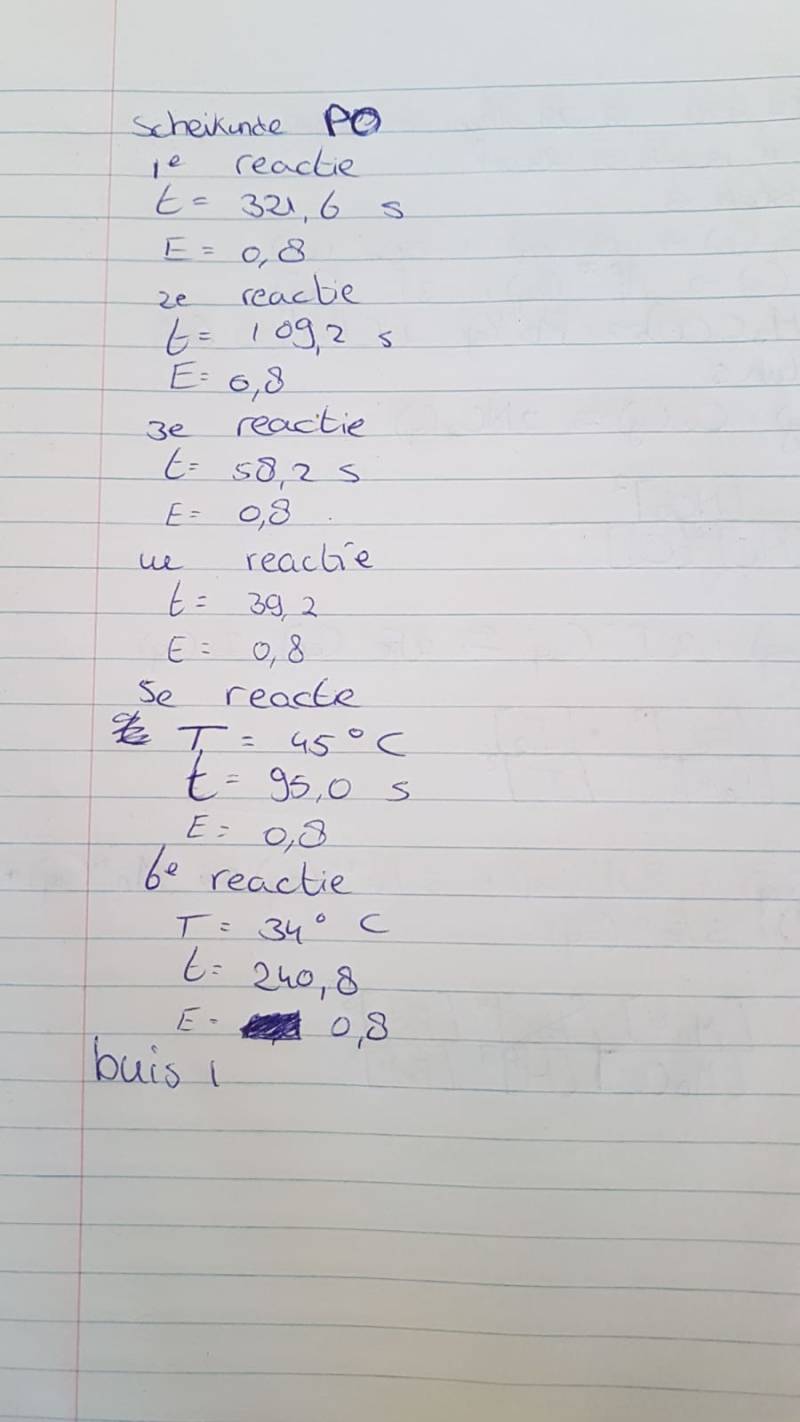 Scheikunde PO
1e reactie
t = 321,6 s
E = 0,8
2e reactie
t = 109,2 s
E = 0,8
3e reactie
t = 58,2 s
E = 0,8
4e reactie
t = 39,2
E = 0,8
5e reactie
T = 45° C
t = 95,0 s
E = 0,8
6e reactie
T = 34° C
t = 240,8
E = 0,8
buis 1